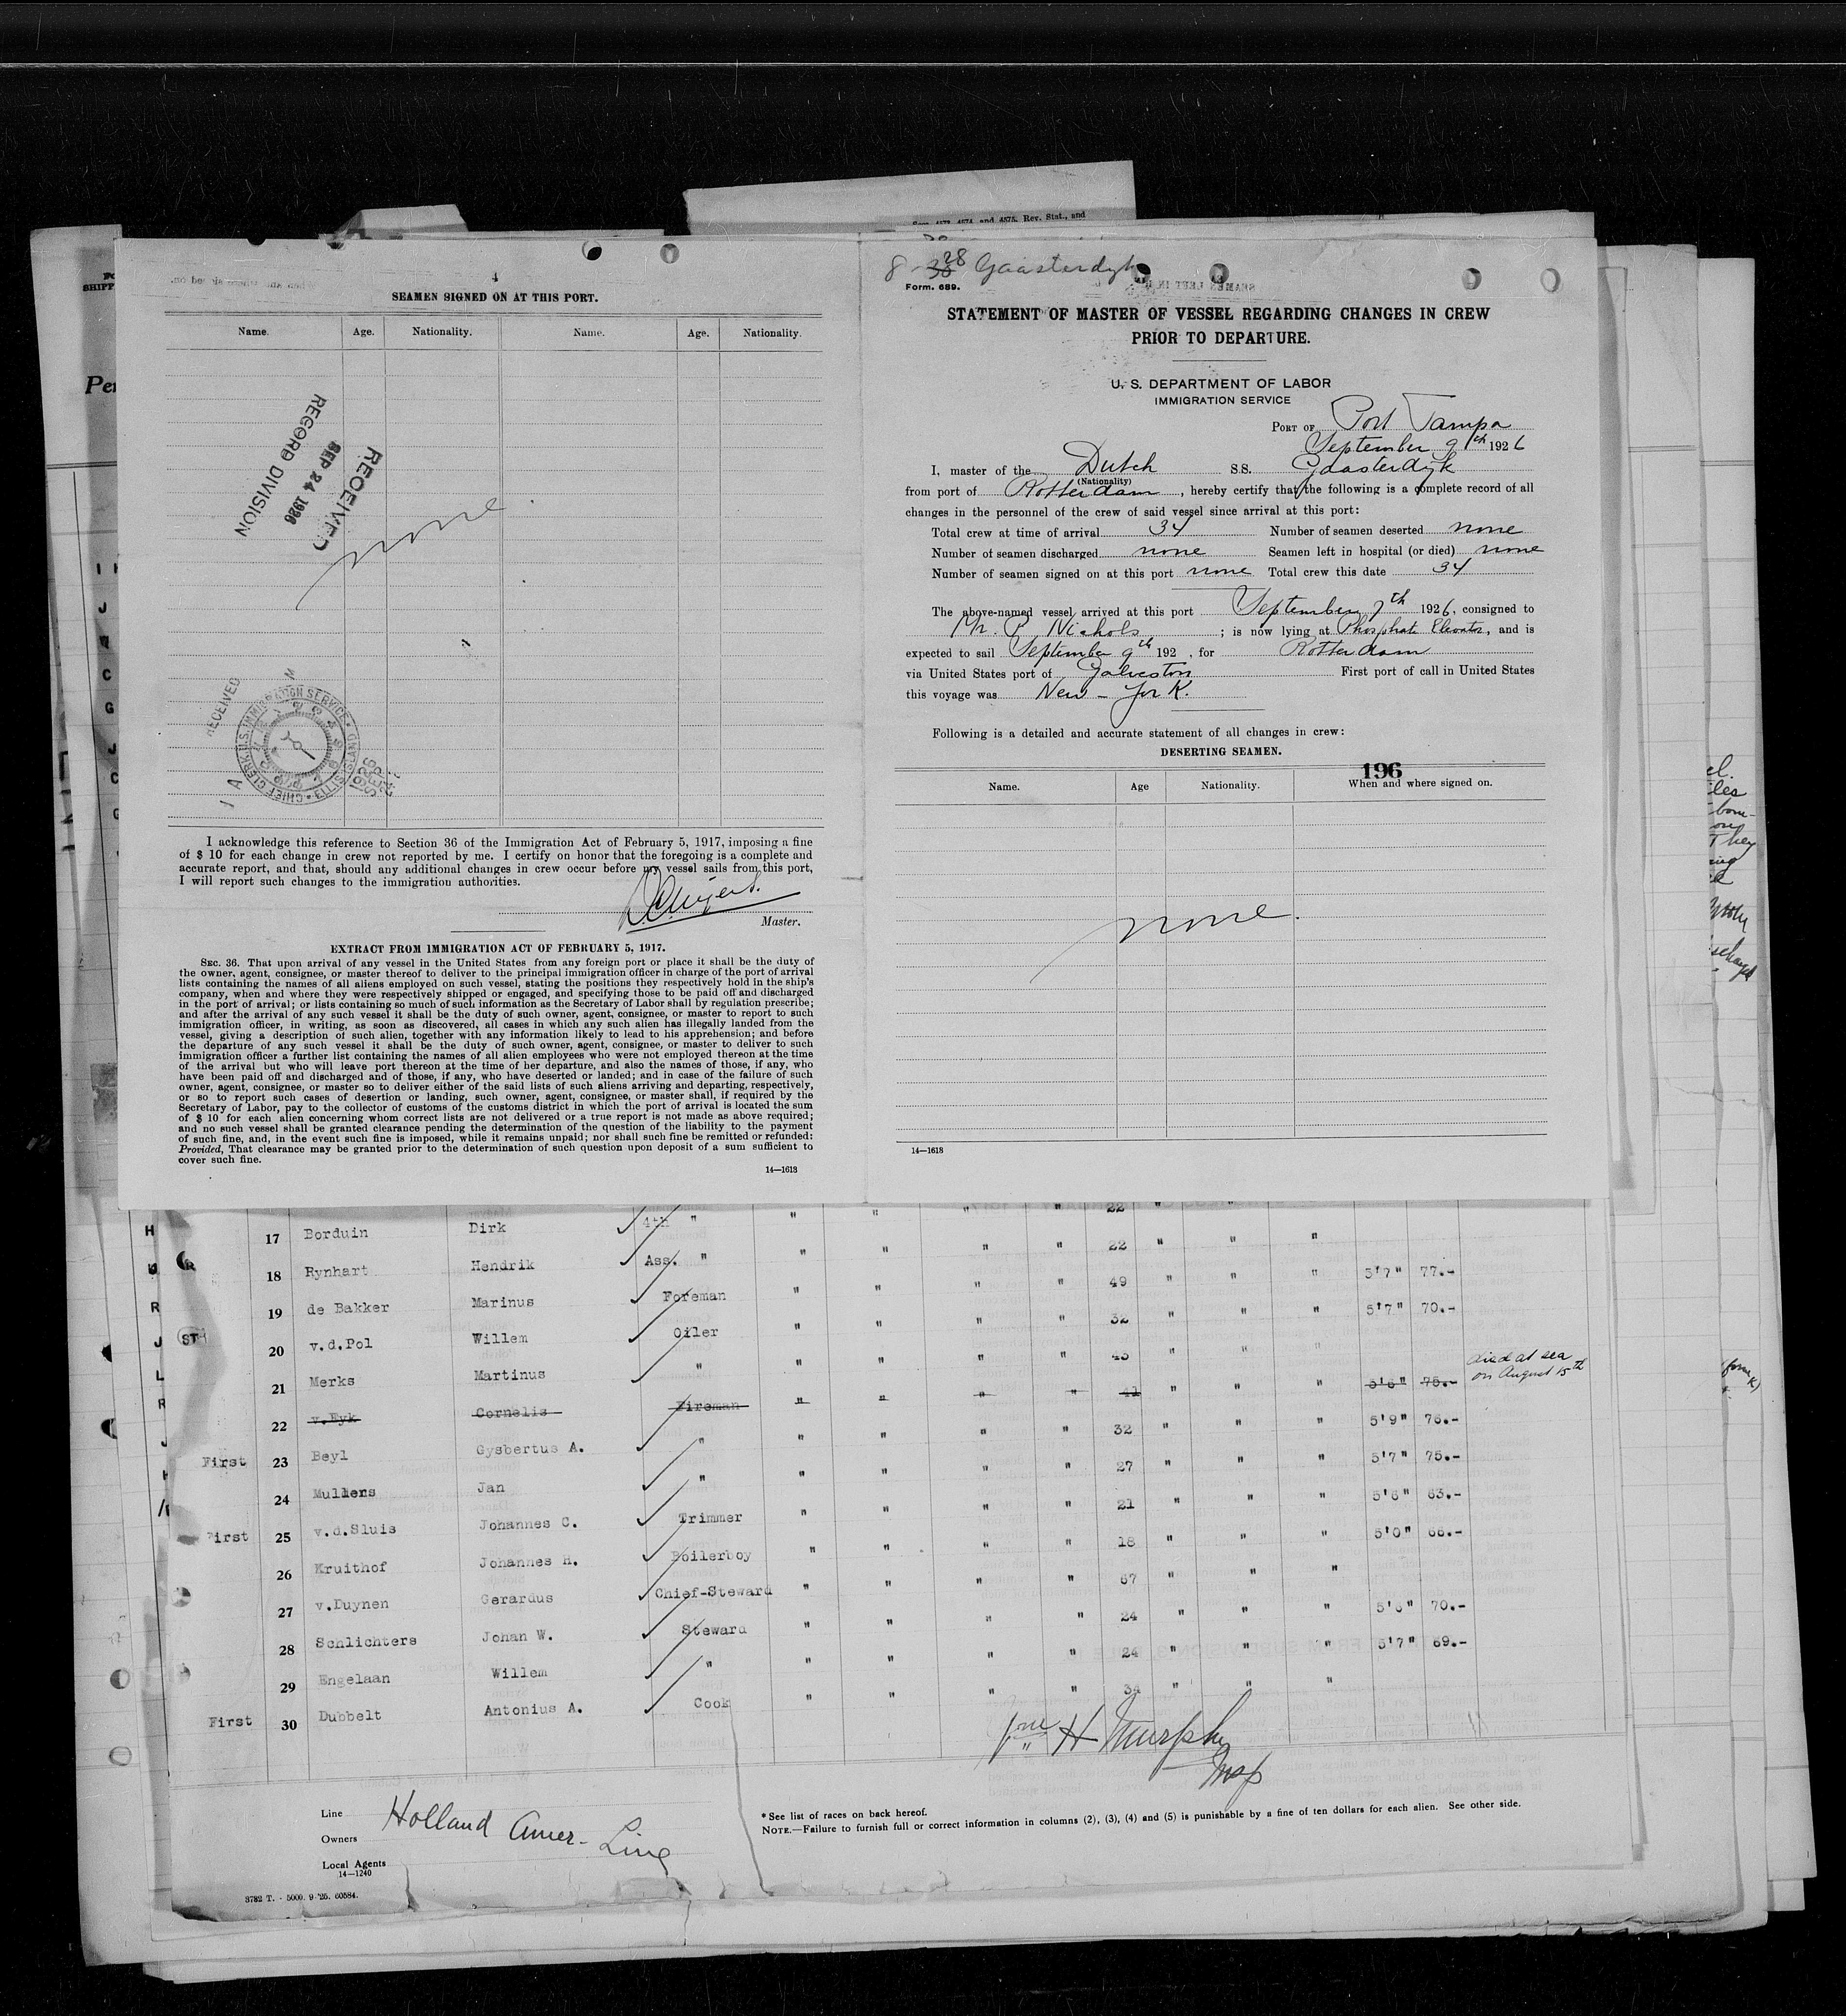 Sec. 4573, 4574, and 4575, Rev. Stat., and
SEAMEN SIGNED ON AT THIS PORT.
Name. Age. Nationality. Name. Age. Nationality.
RECEIVED
SEP 24 1926
RECORD DIVISION
none
RECEIVED
U.S. IMMIGRATION SERVICE
CHIEF CLERK ELLIS ISLAND
1926
SEP
I acknowledge this reference to Section 36 of the Immigration Act of February 5, 1917, imposing a fine
of $ 10 for each change in crew not reported by me. I certify on honor that the foregoing is a complete and
accurate report, and that, should any additional changes in crew occur before my vessel sails from this port,
I will report such changes to the immigration authorities.
Master.
EXTRACT FROM IMMIGRATION ACT OF FEBRUARY 5, 1917.
SEC. 36. That upon arrival of any vessel in the United States from any foreign port or place it shall be the duty of
the owner, agent, consignee, or master thereof to deliver to the principal immigration officer in charge of the port of arrival
lists containing the names of all aliens employed on such vessel, stating the positions they respectively hold in the ship's
company, when and where they were respectively shipped or engaged, and specifying those to be paid off and discharged
in the port of arrival; or lists containing so much of such information as the Secretary of Labor shall by regulation prescribe;
and after the arrival of any such vessel it shall be the duty of such owner, agent, consignee, or master to report to such
immigration officer, in writing, as soon as discovered, all cases in which any such alien has illegally landed from the
vessel, giving a description of such alien, together with any information likely to lead to his apprehension; and before
the departure of any such vessel it shall be the duty of such owner, agent, consignee, or master to deliver to such
immigration officer a further list containing the names of all alien employees who were not employed thereon at the time
of the arrival but who will leave port thereon at the time of her departure, and also the names of those, if any, who
have been paid off and discharged and of those, if any, who have deserted or landed; and in case of the failure of such
owner, agent, consignee, or master so to deliver either of the said lists of such aliens arriving and departing, respectively,
or so to report such cases of desertion or landing, such owner, agent, consignee, or master shall, if required by the
Secretary of Labor, pay to the collector of customs of the customs district in which the port of arrival is located the sum
of $ 10 for each alien concerning whom correct lists are not delivered or a true report is not made as above required;
and no such vessel shall be granted clearance pending the determination of the question of the liability to the payment
of such fine, and, in the event such fine is imposed, while it remains unpaid; nor shall such fine be remitted or refunded:
Provided, That clearance may be granted prior to the determination of such question upon deposit of a sum sufficient to
cover such fine.
14—1618
8-28 Gaasterdyk
Form. 689.
STATEMENT OF MASTER OF VESSEL REGARDING CHANGES IN CREW
PRIOR TO DEPARTURE.
U. S. DEPARTMENT OF LABOR
IMMIGRATION SERVICE
PORT OF Port Tampa
September 9th 1926
I, master of the Dutch S.S. Gaasterdyk
(Nationality)
from port of Rotterdam, hereby certify that the following is a complete record of all
changes in the personnel of the crew of said vessel since arrival at this port:
Total crew at time of arrival 34 Number of seamen deserted none
Number of seamen discharged none Seamen left in hospital (or died) none
Number of seamen signed on at this port none Total crew this date 34
The above-named vessel arrived at this port September 7th 1926, consigned to
Mr. P. Nichols ; is now lying at Phosphate Elevator, and is
expected to sail September 9th 192 , for Rotterdam
via United States port of Galveston First port of call in United States
this voyage was New-York.
Following is a detailed and accurate statement of all changes in crew:
DESERTING SEAMEN.
196
Name. Age Nationality. When and where signed on.
none.
14—1618
22
17 Borduin Dirk 4th " " " " " 22 " " "
18 Rynhart Hendrik Ass. " " " " " 49 " " " 5'7" 77.-
19 de Bakker Marinus Foreman " " " " 32 " " " 5'7" 70.-
20 v.d.Pol Willem Oiler " " " " 43 " " "
21 Merks Martinus " " " " " 41 " " " 5'6" 75.- died at sea
on August 15th
22 v.Eyk Cornelis Fireman " " " " 32 " " " 5'9" 76.-
First 23 Beyl Gysbertus A. " " " " " 27 " " " 5'7" 75.-
24 Mullens Jan " " " " " 21 " " " 5'6" 63.-
First 25 v.d.Sluis Johannes C. Trimmer " " " " 18 " " " 5'0" 66.-
26 Kruithof Johannes H. Boilerboy " " " " 67 " " "
27 v.Duynen Gerardus Chief-Steward " " " " 24 " " " 5'6" 70.-
28 Schlichters Johan W. Steward " " " " 24 " " " 5'7" 69.-
29 Engelaan Willem " " " " " 34 " " "
First 30 Dubbelt Antonius A. Cook " " " "
H Murphy
Insp
Line Holland Amer- Line
Owners
Local Agents
14—1240
3782 T. - 5000. 9-'25. 60584.
* See list of races on back hereof.
NOTE.—Failure to furnish full or correct information in columns (2), (3), (4) and (5) is punishable by a fine of ten dollars for each alien. See other side.